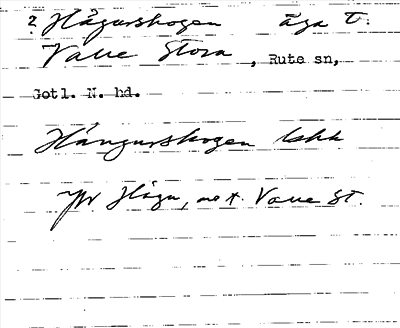 ? Hågurskogen äga t.
Valle Stora, Rute sn,
Gotl. N. hd.
Hångurskogen lshk
Jfr Hågu, no t. Valle St.